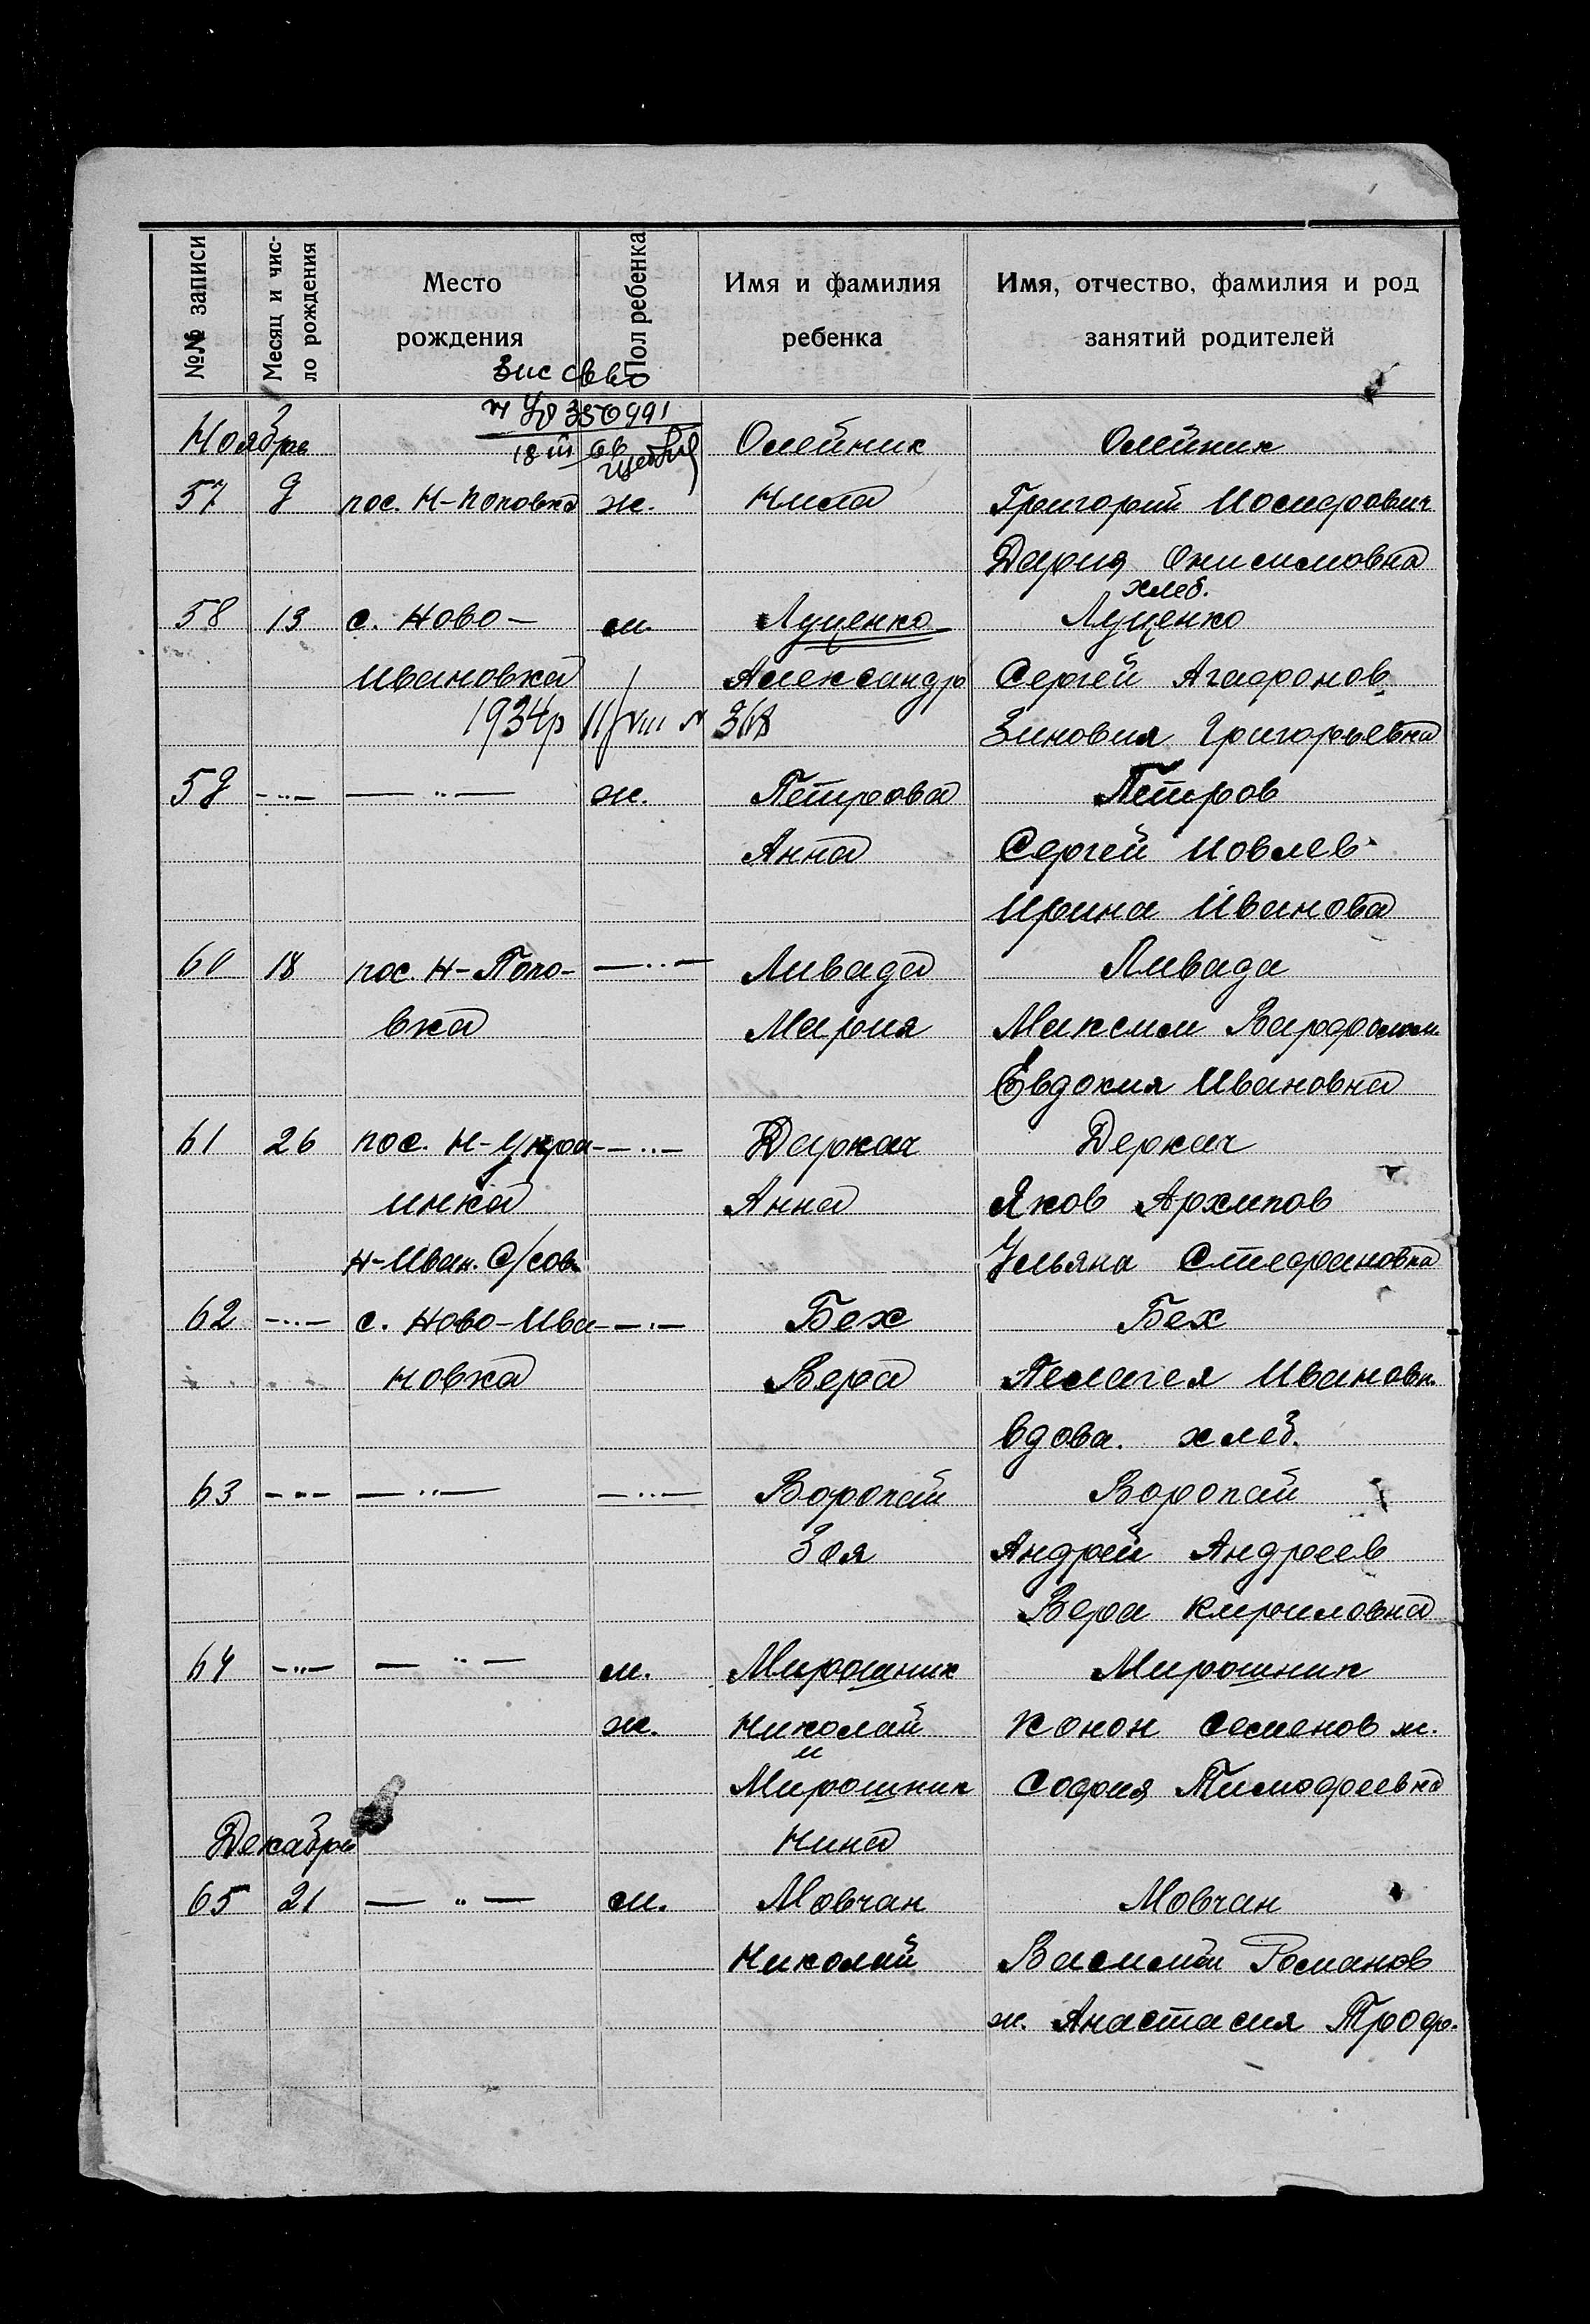 №№ записи
Месяц и число рождения
Место рождения
Пол ребенка
Имя и фамилия ребенка
Имя, отчество, фамилия и род занятий родителей
350991
Ноябрь Олейник Олейник
57 9 пос. Н-Поповка ж. Нина Григорий Иосифович
Дария Онисимовна
хлеб.
58 13 с. Ново- м. Луценко Луценко
Ивановка Александр Сергей Агафонов.
1934р 11/VIII N 368 Зиновия Григорьевна
59 -..- — .. — ж. Петрова Петров
Анна Сергей Иовлев
Ирина Иванова
60 18 пос. Н-Попо- — .. — Ливада Ливада
вка Мария Максим Варфолом.
Евдокия Ивановна
61 26 пос. Н-Укра- -..- Даркач Деркач
инка Анна Яков Архипов
Н-Иван. С/сов. Ульяна Стефановна
62 -..- с. Ново-Ива- -.- Бех Бех
новка Вера Пелагея Ивановн.
вдова. хлеб.
63 -..- — .. — — .. — Воропай Воропай
Зоя Андрей Андреев
Вера Кириловна
64 -..- — .. — м. Мирошник Мирошник
ж. Николай Конон Семенов м.
и
Мирошник София Тимофеевна
Декабрь Нина
65 21 — .. — м. Мовчан Мовчан
Николай Василий Романов
ж. Анастасия Троф.